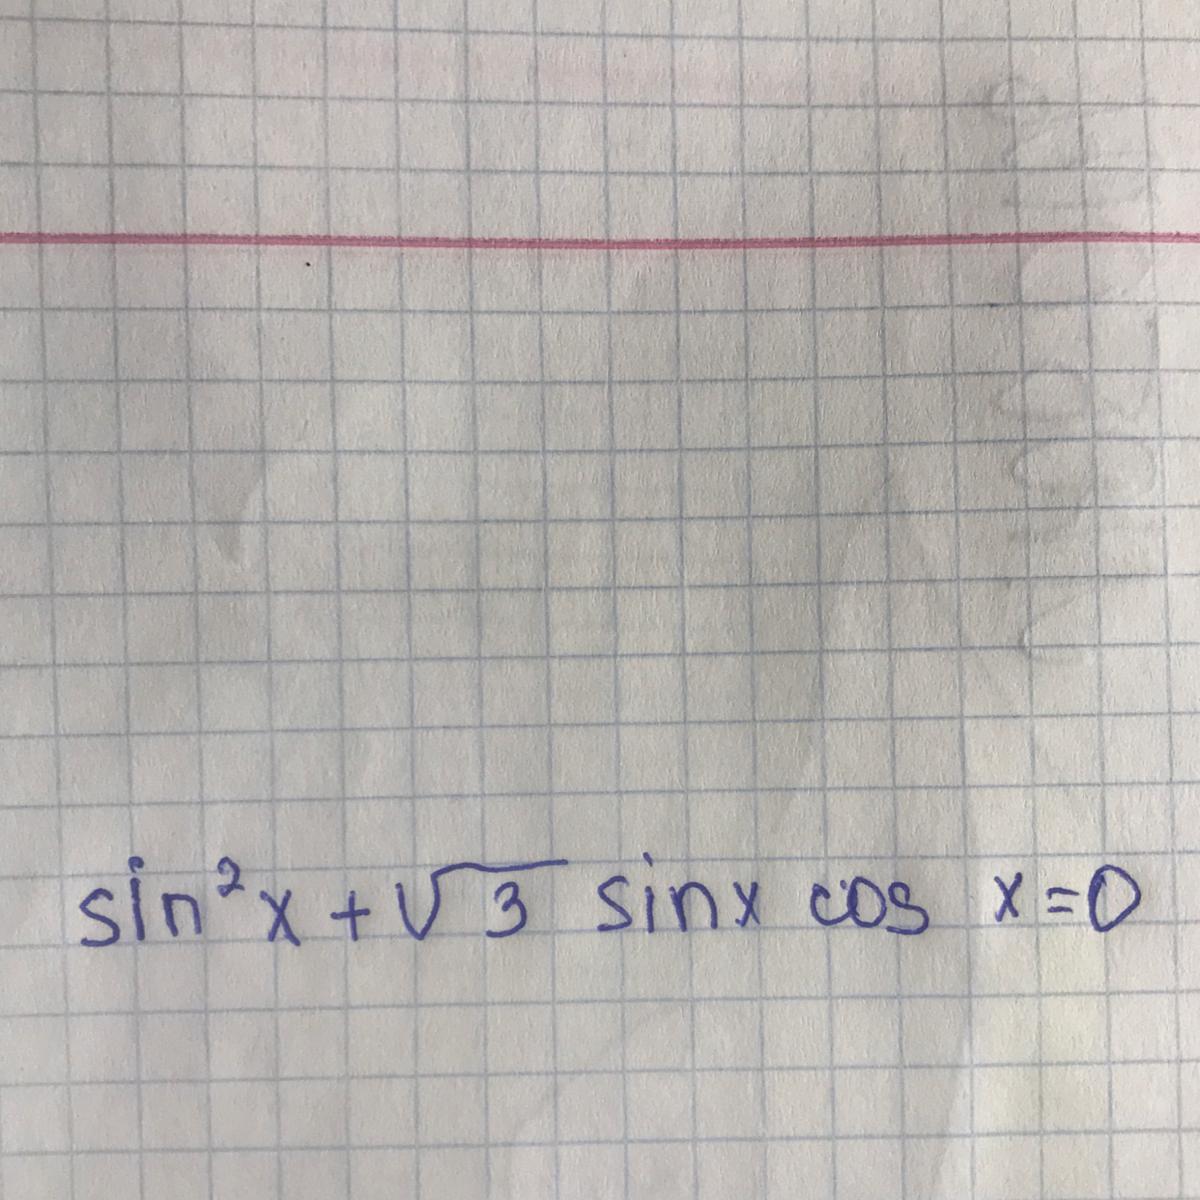 sin²x + √3 sinx cos x = 0